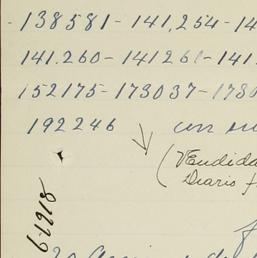 - 138581 - 141,254 - 14
141.260 - 141261 - 141
152175 - 173037 - 173
192246 con su
(Vendida
Diario f
6-1918